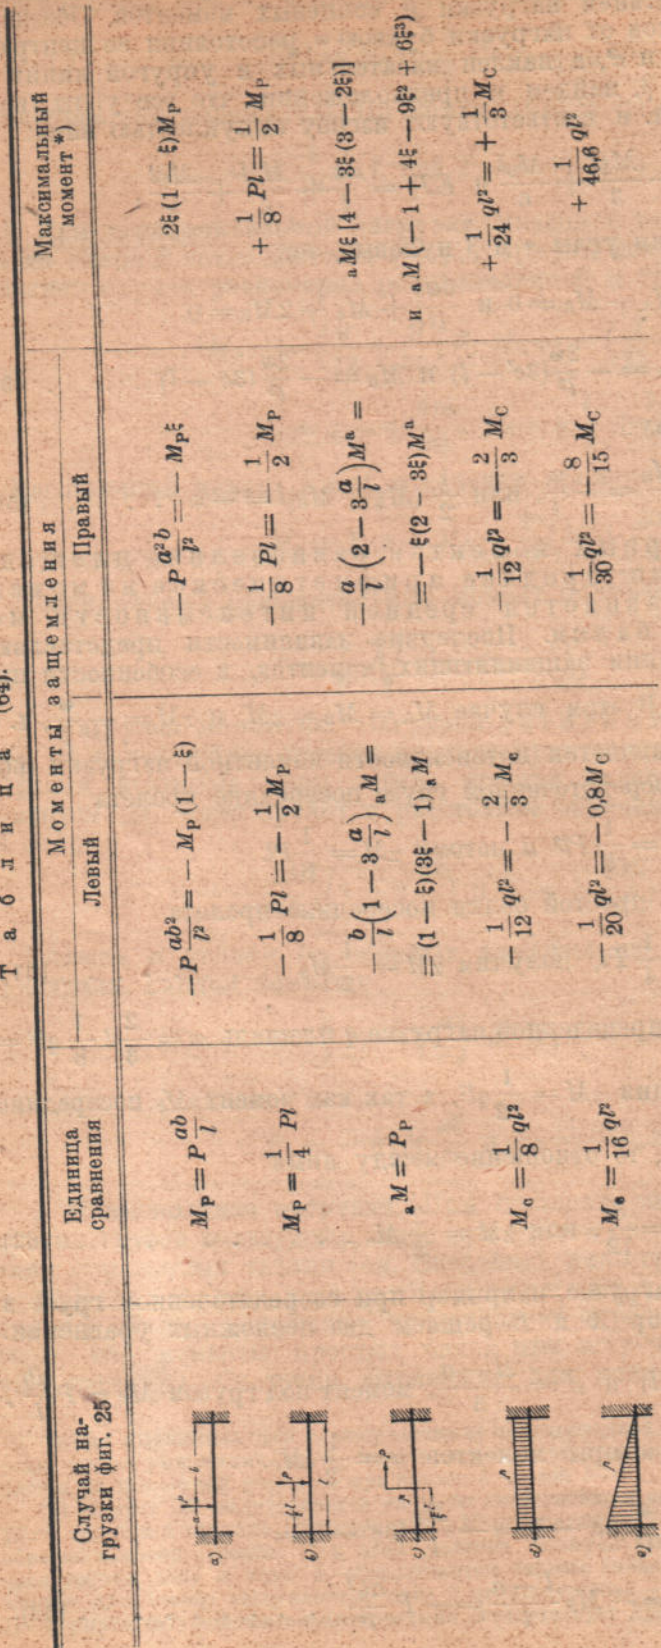 Т а б л и ц а (64).
Случай на-
грузки фиг. 25
Единица
сравнения
Моменты защемления
Левый
Правый
Максимальный
момент *)
a)
M_P = P \frac{ab}{l}
-P \frac{ab^2}{l^2} = - M_P (1 - ξ)
-P \frac{a^2b}{l^2} = - M_P ξ
2ξ (1 - ξ) M_P
b)
M_P = \frac{1}{4} Pl
- \frac{1}{8} Pl = - \frac{1}{2} M_P
- \frac{1}{8} Pl = - \frac{1}{2} M_P
+ \frac{1}{8} Pl = \frac{1}{2} M_P
c)
ₐM = P_P
- \frac{b}{l} (1 - 3 \frac{a}{l}) ₐM =
= (1 - ξ) (3ξ - 1) ₐM
- \frac{a}{l} (2 - 3 \frac{a}{l}) Mᵃ =
= - ξ (2 - 3ξ) Mᵃ
ₐMξ [4 - 3ξ (3 - 2ξ)]
и ₐM (- 1 + 4ξ - 9ξ² + 6ξ³)
d)
M_c = \frac{1}{8} ql²
- \frac{1}{12} ql² = - \frac{2}{3} M_c
- \frac{1}{12} ql² = - \frac{2}{3} M_C
+ \frac{1}{24} ql² = + \frac{1}{3} M_C
e)
M_e = \frac{1}{16} ql²
- \frac{1}{20} ql² = - 0,8 M_C
- \frac{1}{30} ql² = - \frac{8}{15} M_C
+ \frac{1}{46,6} ql²